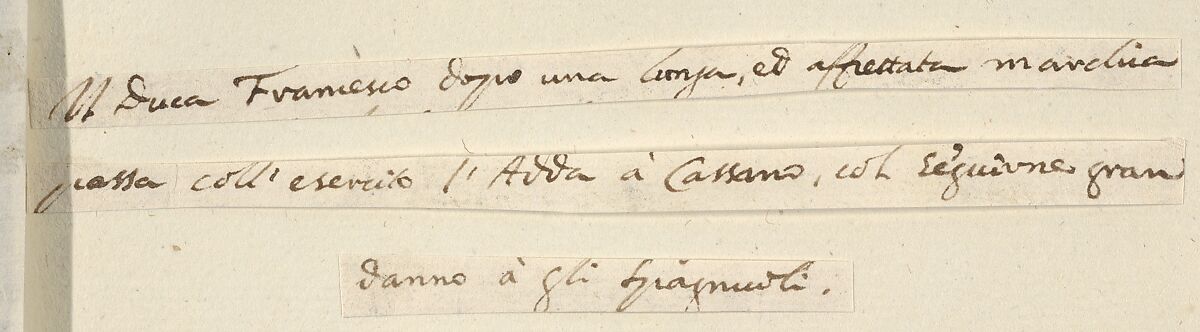 Il Duca Francesco dopo una lunga, ed affrettata marchia
passa coll' esercito l' Adda à Cassano, col seguirne gran
danno à gli Spagnuoli.